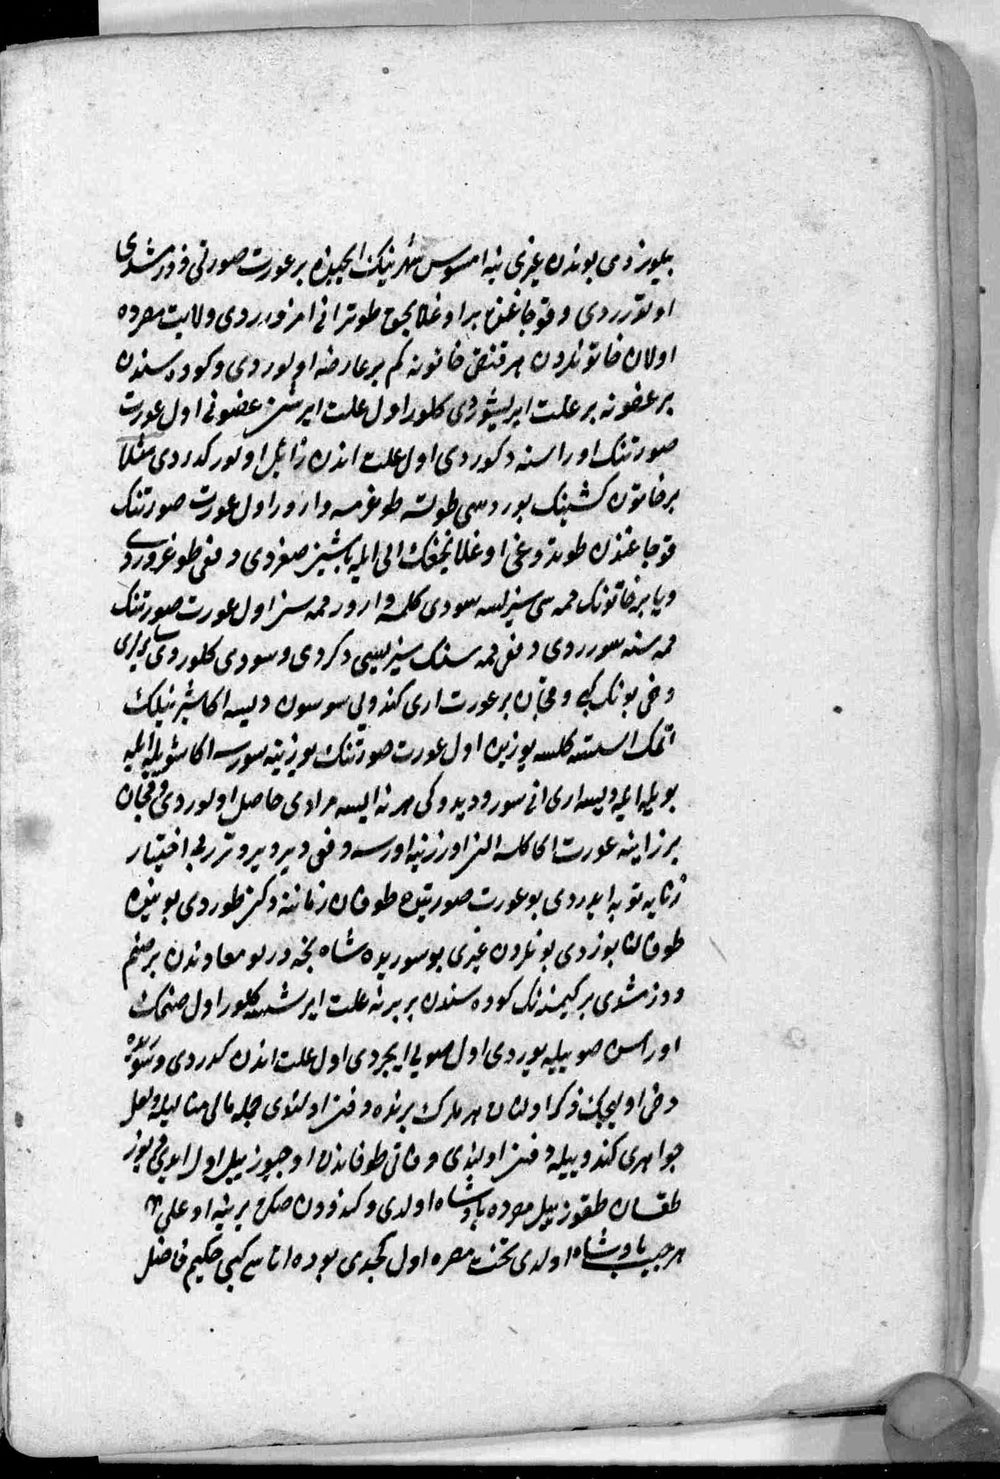 بلورزدی بوندن غیری ینه امسوس شهرینك ایچنده بر عورت صورتی دوزمشدی
اوتوردی و قوجاغنده بر اوغلانجق طوتر انی امزردی ولایت مصرده
اولان خاتونلردن هر قنغی خاتونه کم بر عارضه اولوردی و کوده سندن
بر عضونه بر علت ایریشوردی کلور اول علت ایرشن عضونی اول عورت
صورتنك اوراسنه دکوردی اول علت اندن زائل اولور کدردی مثلا
بر خاتون کشینك بوردسی طولسه طوغرمسه وارور اول عورت صورتنك
قوجاغنده طوتدوغی اوغلانجغك الی ایله باشین صغردی دخی طوغروردی
ویا بر خاتونك ممه سی سیزلسه سودی کلمسه وارور ممه سن اول عورت صورتنك
ممه سنه سوردی دخی ممه سنك سیزیسی دکردی و سودی کلوردی
دخی بونك کبی و قچان بر عورت اری کندویی سوسون دیسه اکا شیرینلك
اتمك استسه کلسه یوزین اول عورت صورتنك یوزینه سورسه اکا شویله ایله
بویله ایله دیسه اری انی سوردیدوکی هر نه ایسه مرادی حاصل اولوردی و قچان
بر زانیه عورت اکا کلسه الن اوزرینه اورسه دخی دیردیر دتردی اختیار
زنایه توبه ایدردی بو عورت صورتین طوفان زماننه دکن طوردی بوینده
طوفان بوزدی بونلردن غیری بو سوریده شاه نجه درلو معادندن بر صنم
دوزمشدی بر کیمسه نك کوده سندن بر یرنه علت ایرشسه کلور اول صنمك
اوراسن صویله یوردی اول صویی ایچردی اول علت اندن کدردی و سورید
دخی اولیجك ذکر اولنان هرملرك برنده دفن اولندی جمله مالی متاعیله و لعل
جواهری کندوییله دفن اولندی وفاتی طوفاندن اوچیوز ییل اول ایدی یوز
طقسان طقوز ییل مصرده پادشاه اولدی و کندودن صکره یرینه اوغلی
هرجیب پادشاه اولدی تخت مصره اول کچدی بو ده اتاسی کبی حکیم فاضل